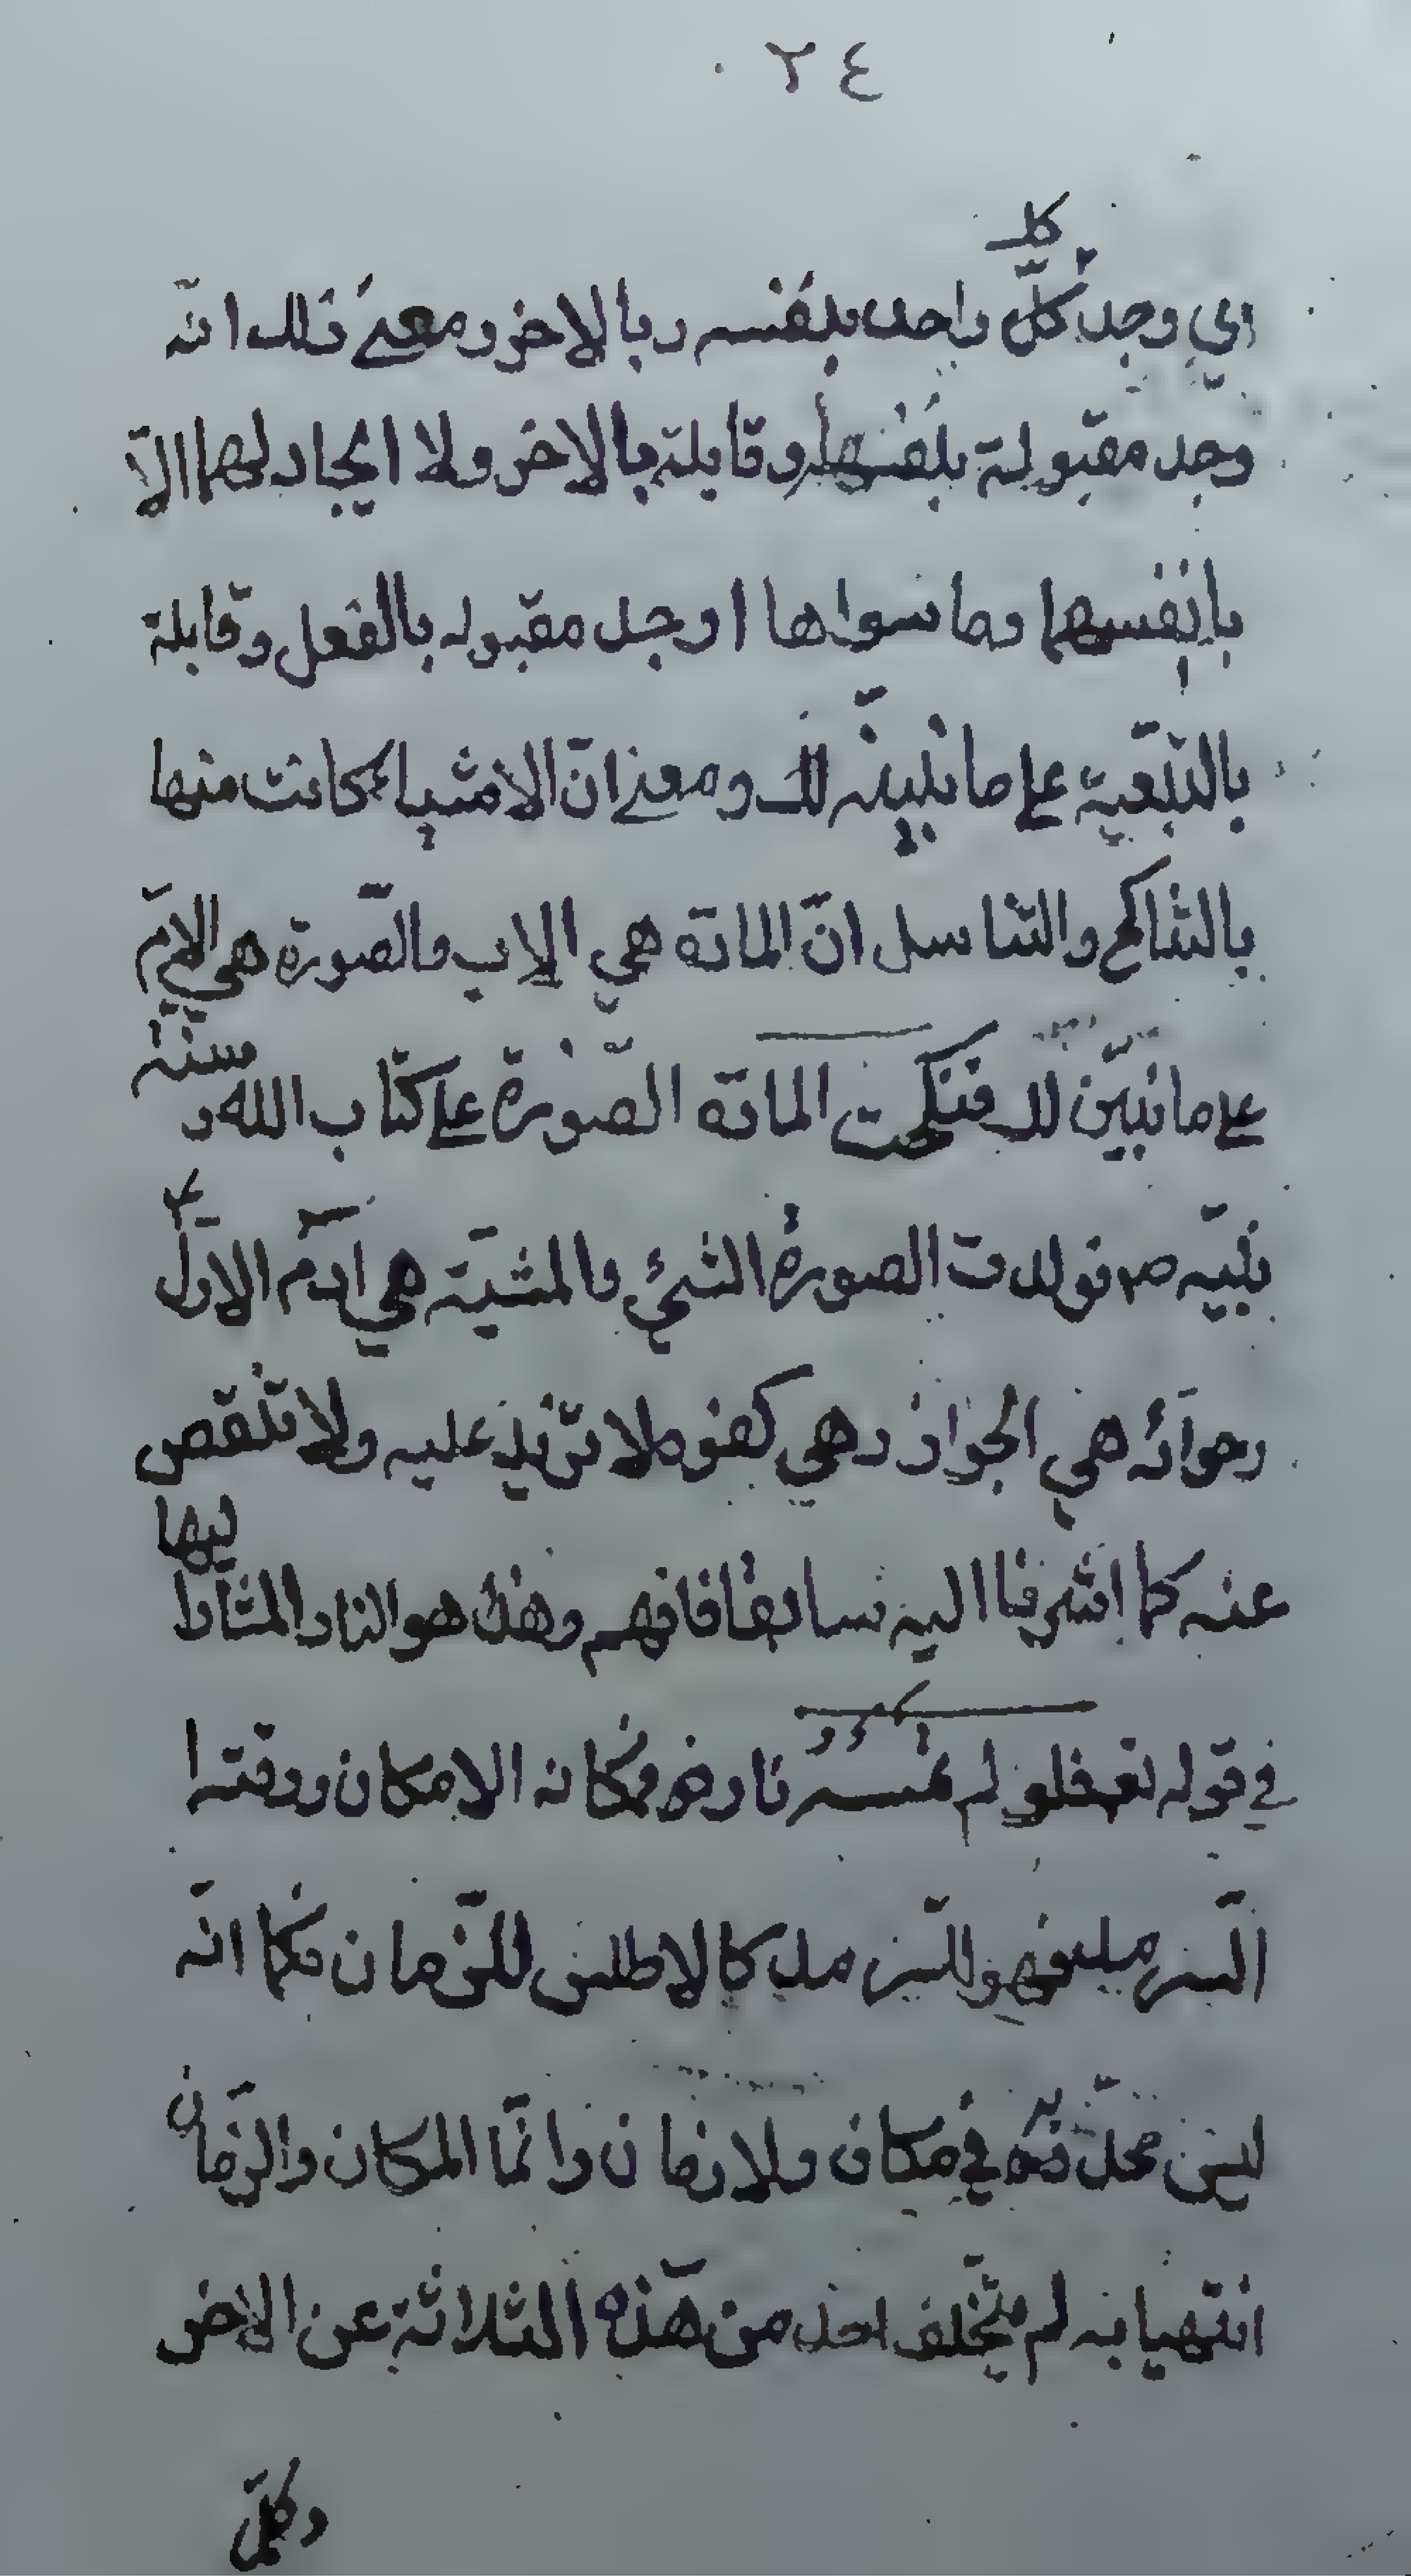 ٢٤
كل
اي وجد كلّ واحد بنفسه وبالاخر ومعنى ذلك انّه
وجد مقبولة بنفسها وقابلة بالاخر ولا ايجاد لهما الّا
بانفسهما وما سواها اوجد مقبوله بالفعل وقابلة
بالتبّعية على ما نبينّه لك ومعنى انّ الاشياء كانت منها
بالتناكح والتناسل انّ المادّة هي الاب والصّورة هي الامّ
على ما نبيّن لك فنكحت المادّة الصّورة على كتاب الله و سنّة
نبيّه ص فولدت الصورة الشيئ والمشيّة هي ادم الاوّل
وحوائه هي الجواز وهي كفوه لا تزيد عليه ولا تنقص
عنه كما اشرنا اليه سابقا فافهم وهذا هو النار المشار اليها
في قوله تع ولو لم تمسسه نار فمكانه الامكان ووقته
السرمد فهو للسرمد كالاطلس للزمان فكما انّه
ليس محدّده في مكان ولا زمان وانّما المكان والزّمان
انتهيا به لم يتخّلف احد من هذه الثلاثة عن الاخر
وكلّ